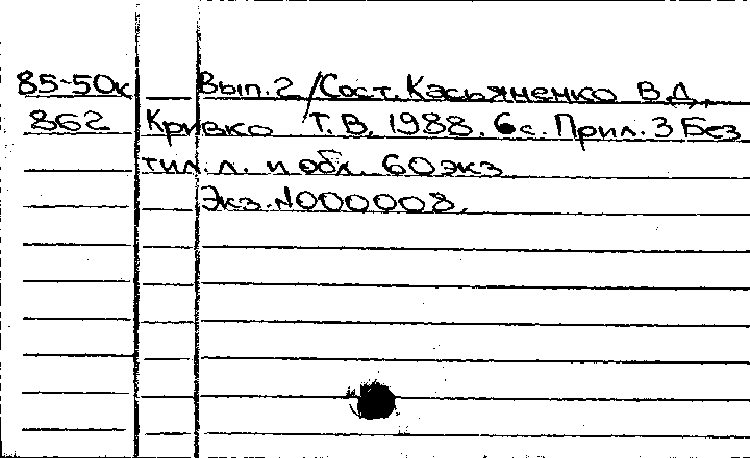 85-50к Вып. 2 / Сост. Касьяненко В.Д.,
862 Кривко Т.В. 1988. 6с. Прил. 3 Без
тил. л. и обл. 60 экз.
Экз. №000008.